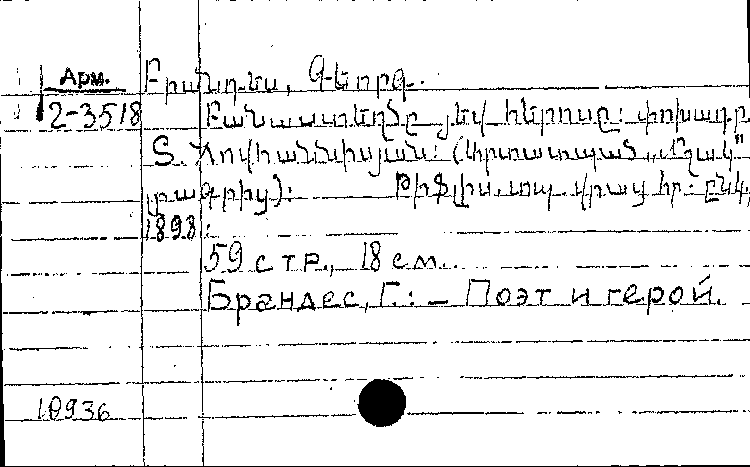 Арм.
Բրանդես, Գեորգ.
2-3518
Բանաստեղծը յեվ հերոսը: Փոխադր.
Տ. Հովհաննիսյան: (Արտատպած „Մշակ"
լրագրից): Թիֆլիս, տպ. վրաց հր. ընկ.,
1898:
59 стр., 18 см.
Брандес, Г.: – Поэт и герой.
10936